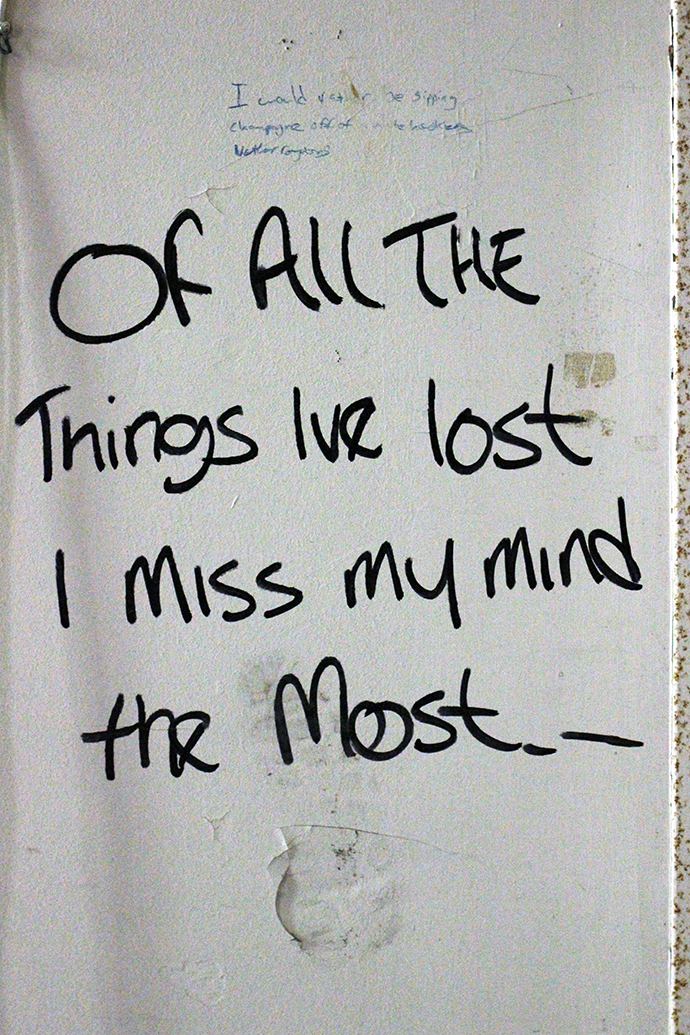 I would rather be sipping
champagne off of
OF All THE
Things Ive lost
I Miss my mind
the Most._